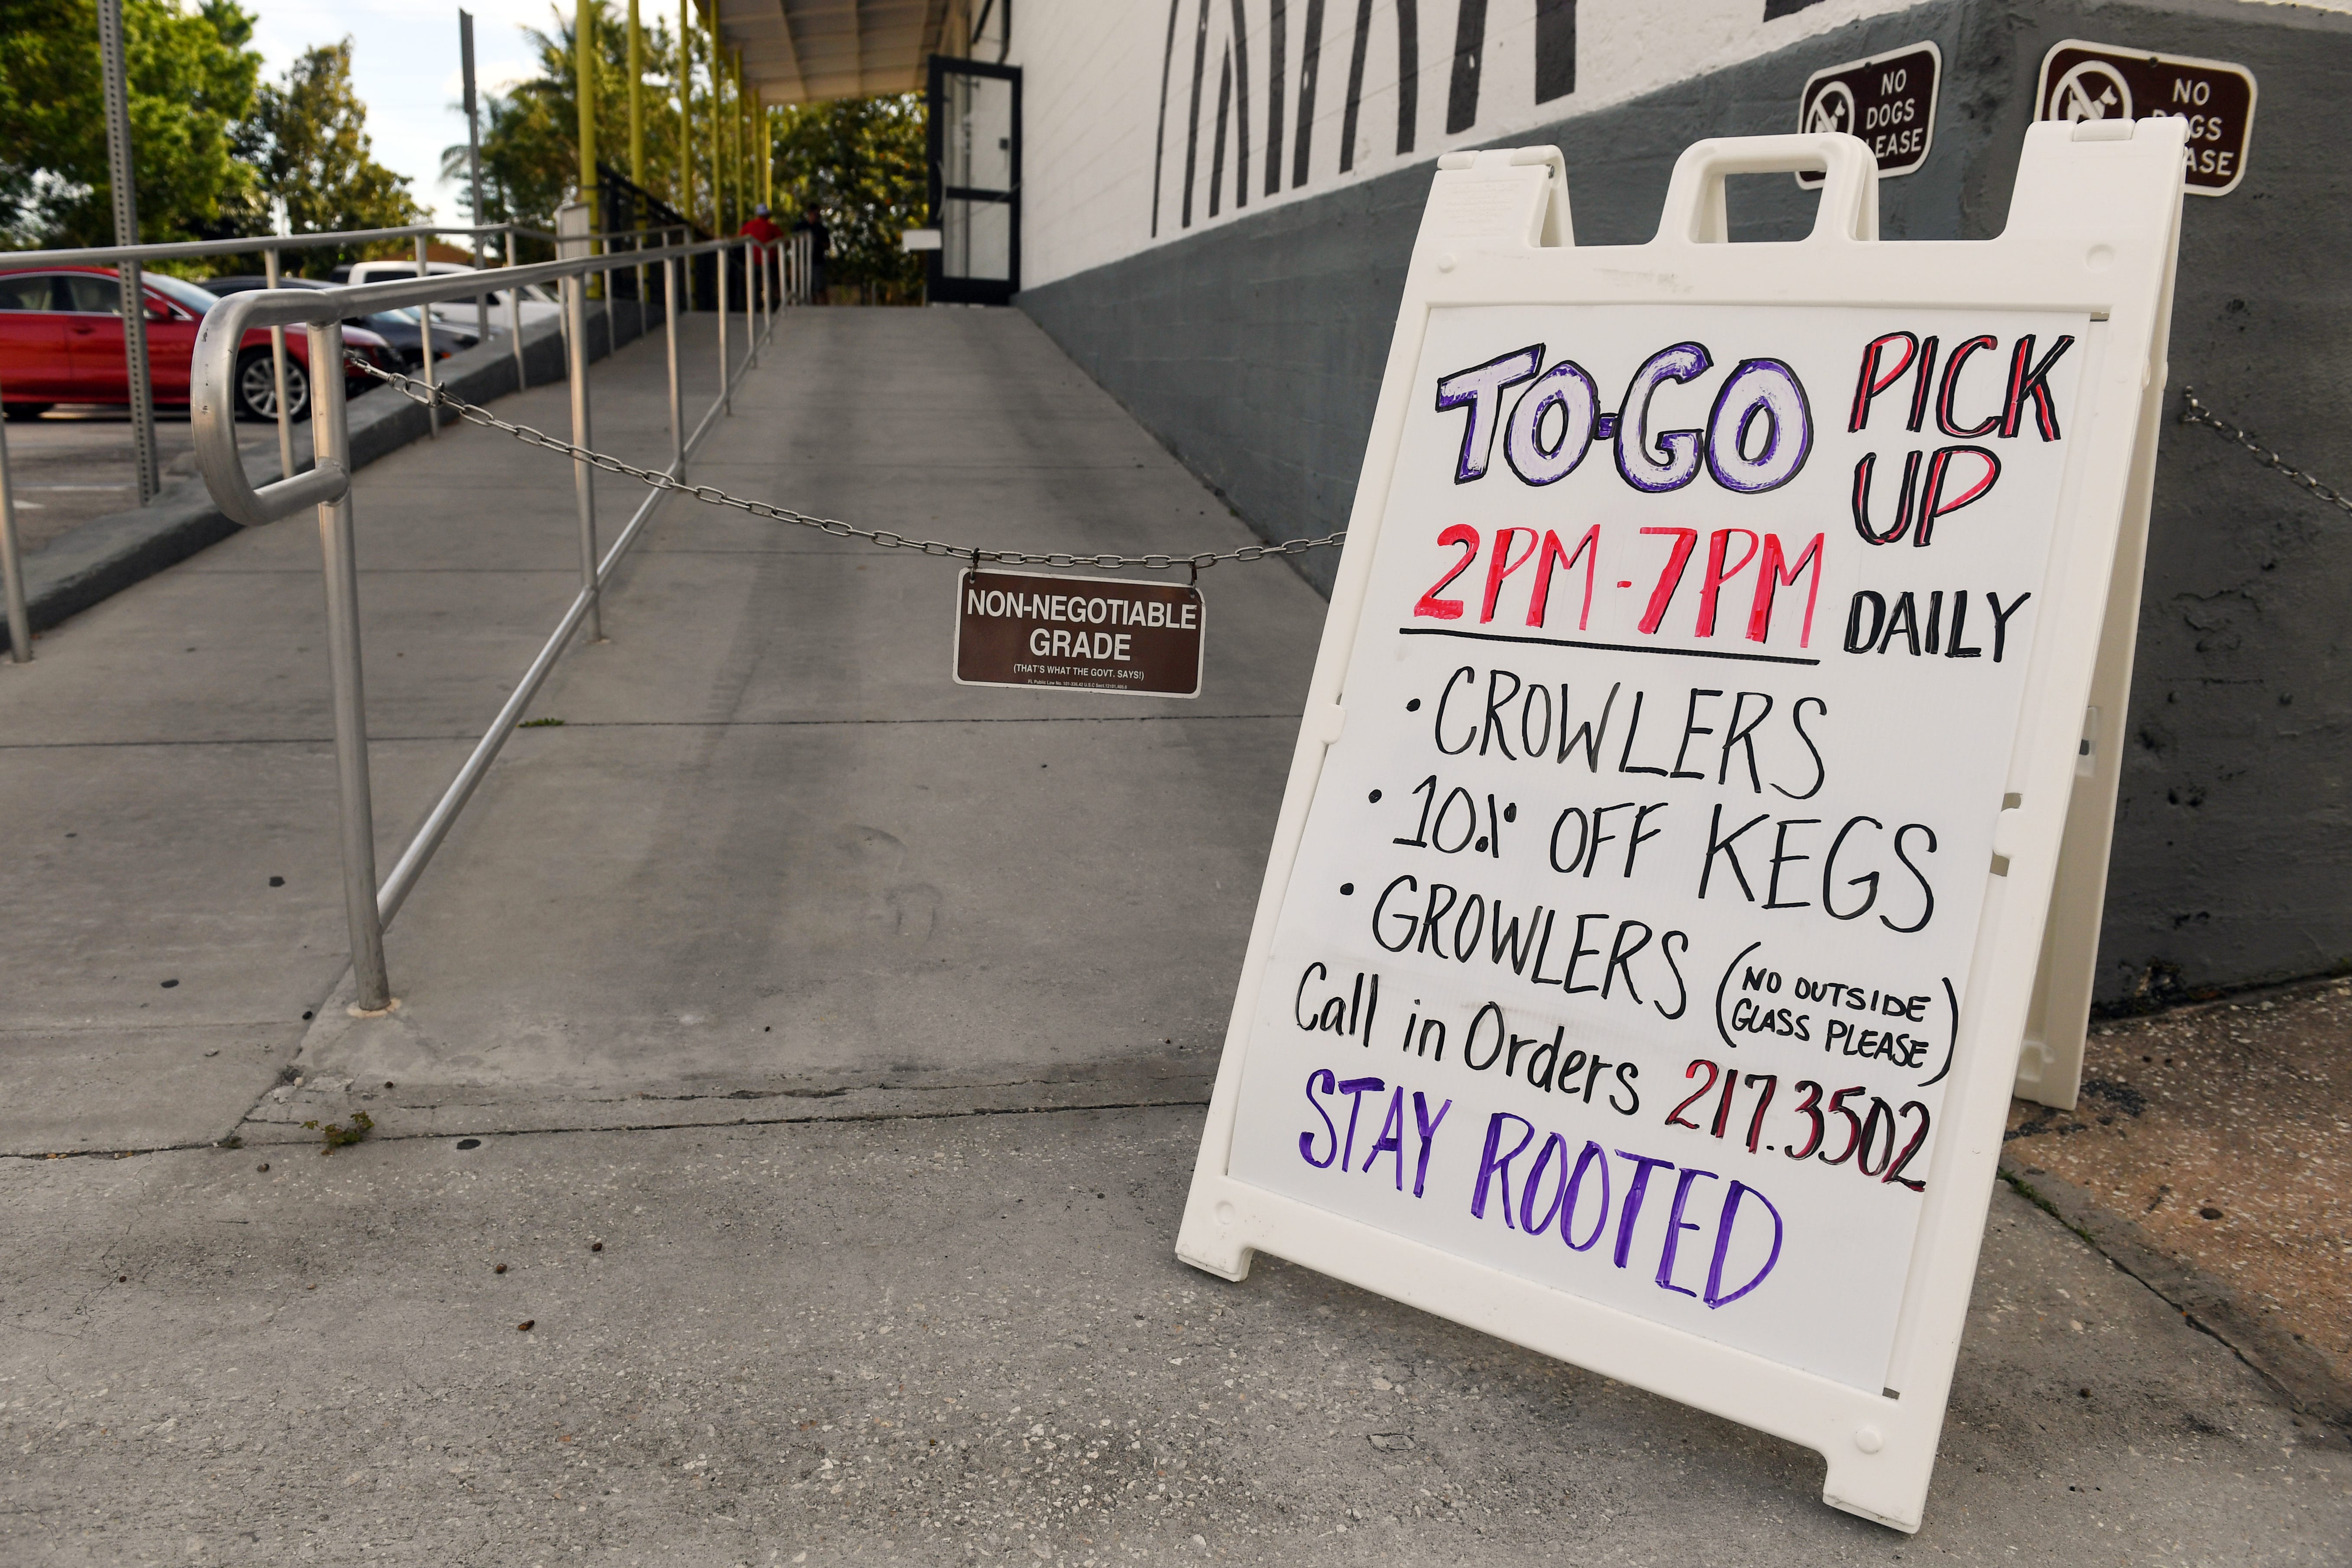 NO
DOGS
LEASE
NO
GS
ASE
TO-GO PICK
UP
2PM-7PM DAILY
• CROWLERS
• 10% OFF KEGS
• GROWLERS (NO OUTSIDE
GLASS PLEASE)
Call in Orders 217.3502
STAY ROOTED
NON-NEGOTIABLE
GRADE
(THAT'S WHAT THE GOVT. SAYS!)